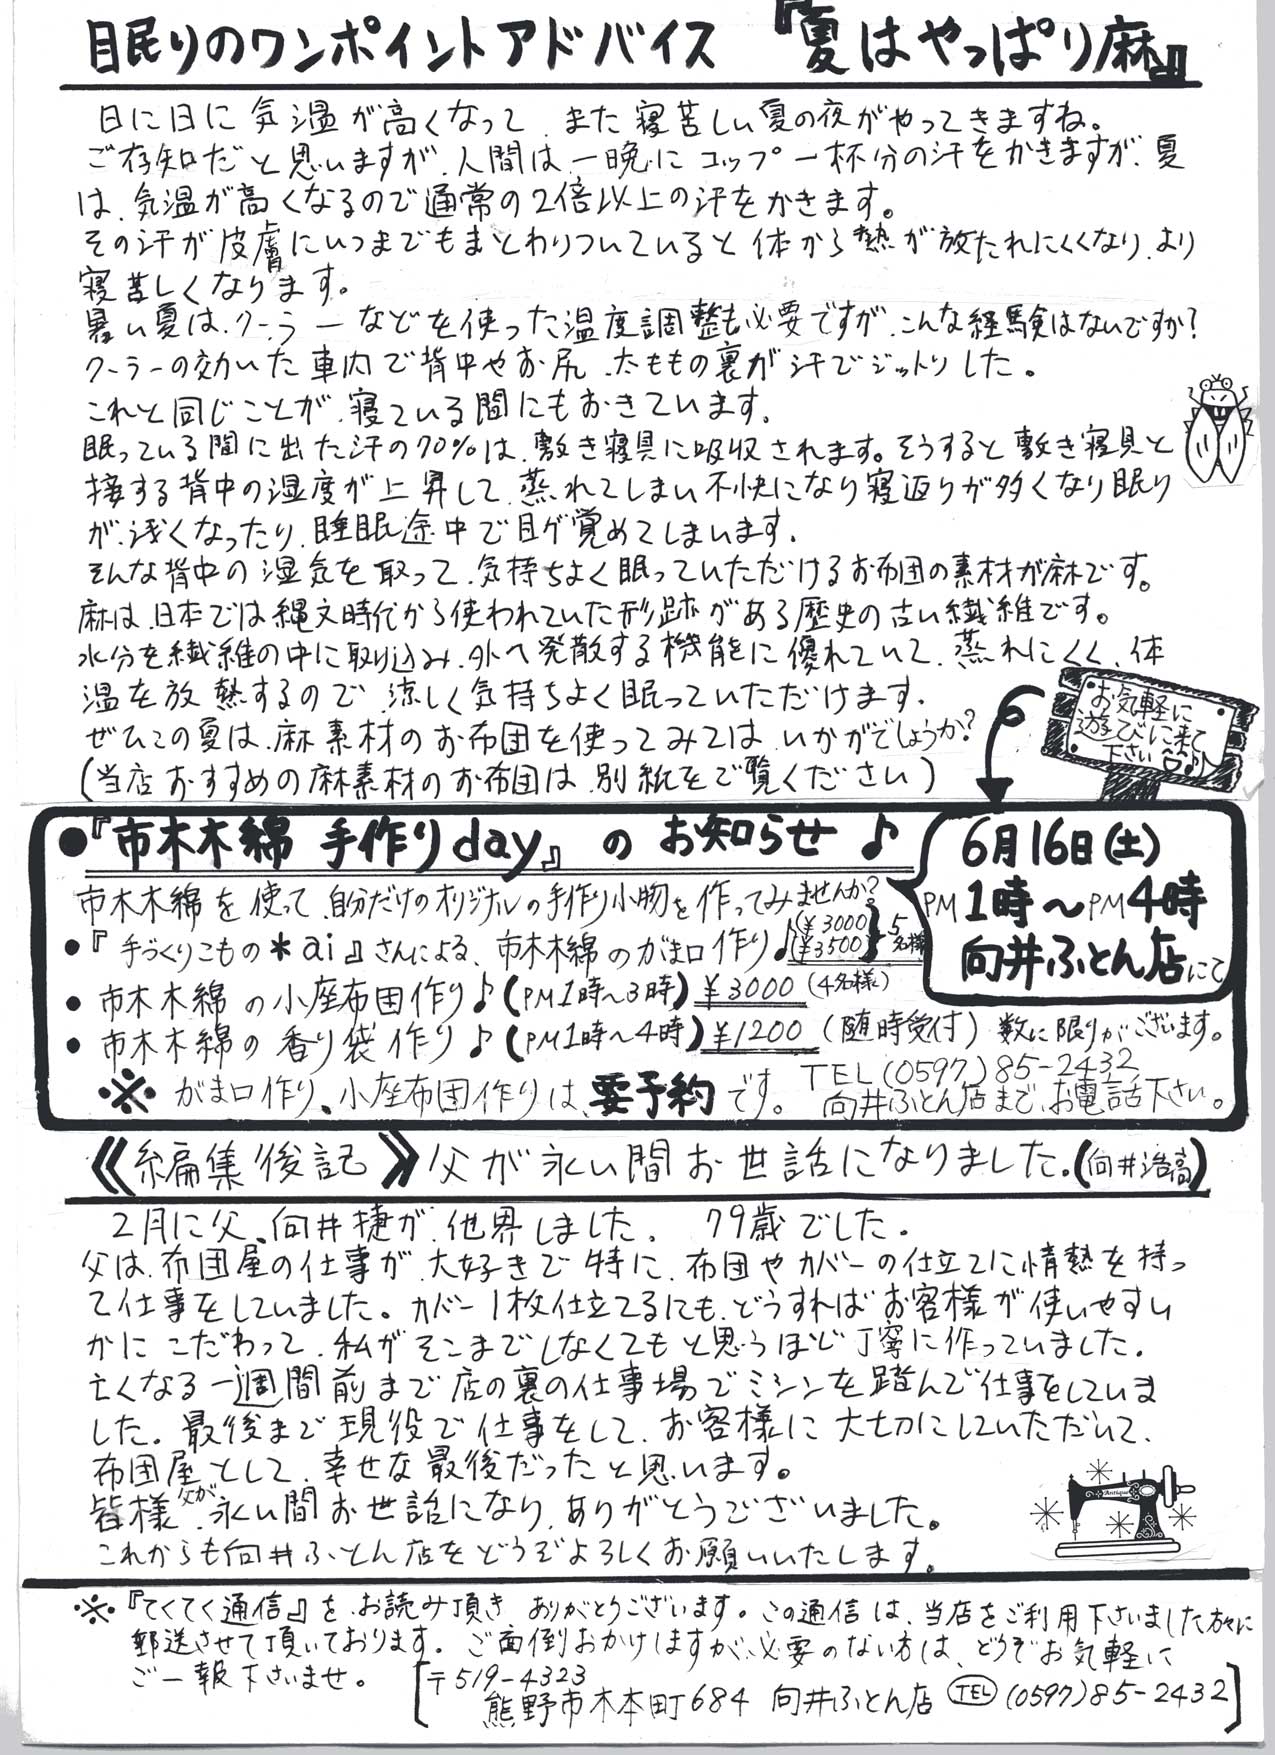 眠りのワンポイントアドバイス 『夏はやっぱり麻』
日に日に気温が高くなって、また寝苦しい夏の夜がやってきますね。
ご存知だと思いますが、人間は一晩にコップ一杯分の汗をかきますが、夏
は、気温が高くなるので通常の2倍以上の汗をかきます。
その汗が皮膚にいつまでもまとわりついていると体から熱が放たれにくくなり、より
寝苦しくなります。
暑い夏は、クーラーなどを使った温度調整も必要ですが、こんな経験はないですか?
クーラーの効いた車内で背中やお尻、太ももの裏が汗でジットリした。
これと同じことが、寝ている間にもおきています。
眠っている間に出た汗の70%は、敷き寝具に吸収されます。そうすると敷き寝具と
接する背中の湿度が上昇して、蒸れてしまい不快になり寝返りが多くなり眠り
が、浅くなったり、睡眠途中で目が覚めてしまいます。
そんな背中の湿気を取って、気持ちよく眠っていただけるお布団の素材が麻です。
麻は、日本では縄文時代から使われていた形跡がある歴史の古い繊維です。
水分を繊維の中に取り込み、外へ発散する機能に優れていて、蒸れにくく、体
温を放熱するので、涼しく気持ちよく眠っていただけます。
ぜひこの夏は、麻素材のお布団を使ってみてはいかがでしょうか?
(当店おすすめの麻素材のお布団は、別紙をご覧ください)
お気軽に
遊びに来て
下さい♪
●『市木木綿 手作りday』のお知らせ♪
6月16日(土)
PM1時〜PM4時
向井ふとん店にて
市木木綿を使って、自分だけのオリジナルの手作り小物を作ってみませんか?
●『手づくりこもの*ai』さんによる、市木木綿のがま口作り♪(¥3000)(¥3500)5名様
●市木木綿の小座布団作り♪(PM1時〜3時)¥3000(4名様)
●市木木綿の香り袋作り♪(PM1時〜4時)¥1200(随時受付)数に限りがございます。
※がま口作り、小座布団作りは、要予約です。TEL(0597)85-2432
向井ふとん店まで、お電話下さい。
《編集後記》父が永い間お世話になりました。(向井浩高)
2月に父、向井捷が、他界しました。79歳でした。
父は、布団屋の仕事が、大好きで特に、布団やカバーの仕立てに情熱を持っ
て仕事をしていました。カバー1枚仕立てるにも、どうすればお客様が使いやすい
かにこだわって、私がそこまでしなくてもと思うほど丁寧に作っていました。
亡くなる一週間前まで店の裏の仕事場でミシンを踏んで仕事をしていま
した。最後まで現役で仕事をして、お客様に大切にしていただいて、
布団屋として、幸せな最後だったと思います。
皆様、父が永い間お世話になり、ありがとうございました。
これからも向井ふとん店をどうぞよろしくお願いいたします。
Antique
※『てくてく通信』を、お読み頂き、ありがとうございます。この通信は、当店をご利用下さいました方々に
郵送させて頂いております。ご面倒おかけしますが、必要のない方は、どうぞお気軽に
ご一報下さいませ。
〒519-4323
熊野市木本町684 向井ふとん店 TEL(0597)85-2432